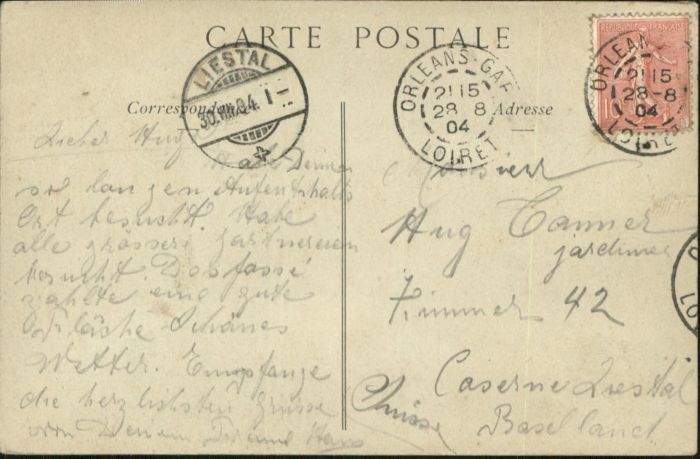 CARTE POSTALE
Correspondance
Adresse
LIESTAL
30.VIII.04. I
ORLEANS-GARE
21 15
28 8
04
LOIRET
REPUBLIQUE FRANÇAISE
ORLEANS
21 15
28-8
04
Lieber Hug
Habe Deinen
so langen Aufenthalts
Ort besucht. Habe
alle grössere Gärtnereien
besucht.
zählte eine gute
Fläche Schönes
Wetter. Empfange
die herzlichsten Grüsse
von Deinem Freund Hans
Monsieur
Hug Tanner
jardinier
Zimmer 42
Caserne Liestal
Baselland
Suisse